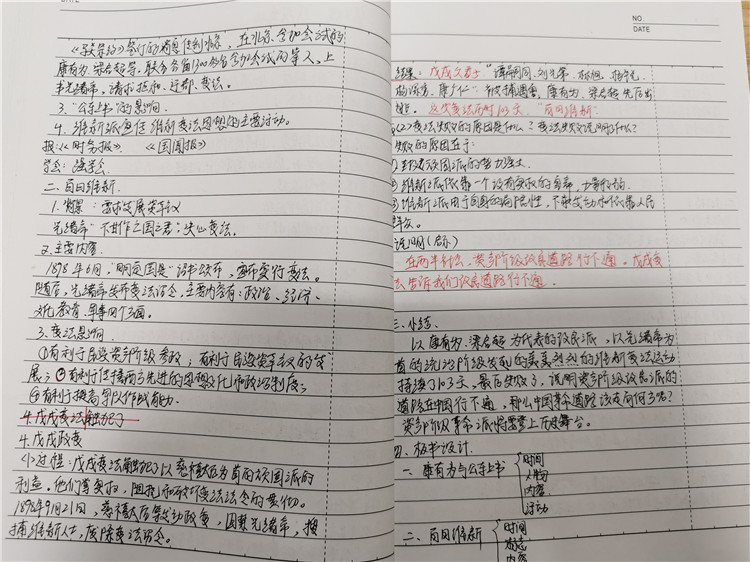 《马关条约》签订的消息传到北京，在北京参加会试的
康有为、梁启超等，联合各省1300多名参加会试的举人，上
书光绪帝，请求拒和、迁都、变法。
3. "公车上书"的影响。
4. 维新派宣传维新变法思想的主要活动。
报：《时务报》 《国闻报》
学会：强学会
二、百日维新
1. 背景：需求发展资本主义
光绪帝"不甘作亡国之君"：决心变法。
2. 主要内容
1898年6月，"明定国是"诏书颁布，宣布实行变法。
随后，光绪帝发布变法法令，主要内容有：政治、经济、
文化教育、军事四个方面。
3. 变法影响
①有利于民族资产阶级参政；有利于民族资本主义的发
展；②有利于传播西方先进的思想文化和政治制度；
③有利于提高军队作战能力。
4. 戊戌变法触犯了
4. 戊戌政变
(1)过程：戊戌变法触犯了以慈禧太后为首的顽固派的
利益。他们掌实权，阻挠和破坏变法法令的贯彻。
1898年9月21日，慈禧太后等发动政变，囚禁光绪帝，搜
捕维新人士，废除变法诏令。
NO.
DATE
DATE
结果："戊戌六君子"谭嗣同、刘光第、林旭、杨锐、
杨深秀、康广仁 被捕遇害，康有为、梁启超先后出
逃。这次变法历时103天，"百日维新"
(2)变法失败的原因是什么？变法失败说明了什么？
失败的原因在于：
①封建顽固派的势力强大
②维新派依靠一个没有实权的皇帝，力量弱
③维新派由于自身的局限性，不敢发动和依靠人民
群众。
说明(启示)
在近代中国，资产阶级改良道路行不通。戊戌变
法告诉我们改良道路行不通
三、小结
以康有为、梁启超为代表的改良派，以光绪帝为
首的统治阶级发起的轰轰烈烈的维新变法运动
持续了103天，最后失败了，说明资产阶级改良派的
道路在中国行不通，那么中国革命道路该走向何方呢？
资产阶级革命派将需要上历史舞台。
四、板书设计
一、康有为与公车上书 时间
人物
内容
活动
二、百日维新 时间
标志
内容